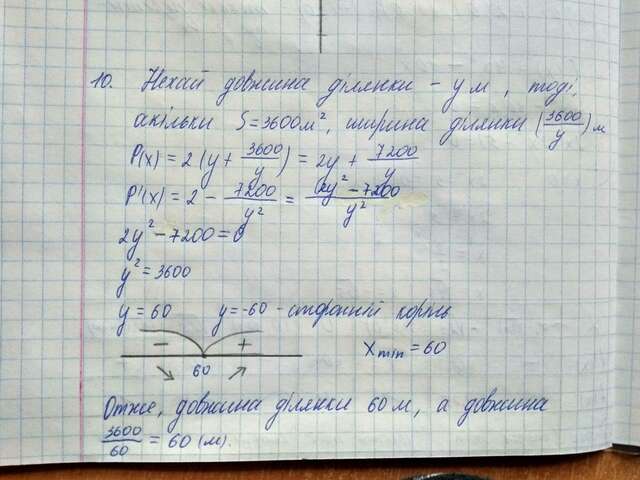 10. Нехай довжина ділянки - y м, тоді,
акільки S=3600м², ширина ділянки (3600/y) м
P(x) = 2 (y + 3600/y) = 2y + 7200/y
P'(x) = 2 - 7200/y² = (2y² - 7200)/y²
2y² - 7200 = 0
y² = 3600
y = 60 y = -60 - сторонній корінь
- +
60
x min = 60
Отже, довжина ділянки 60 м, а довжина
3600/60 = 60 (м).